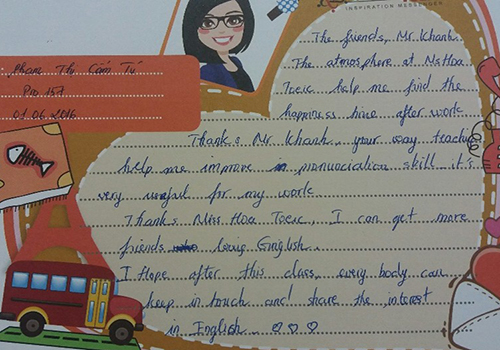 INSPIRATION MESSENGER
Phạm Thị Cẩm Tú
Pro 157
01.06.2016
The friends, Mr. Khanh.
The atmosphere at Ms Hoa
Toeic help me find the
happiness time after work
Thanks Mr Khanh, your way teaching
help me improve pronunciation skill. it's
very useful for my work
Thanks Miss Hoa Toeic, I can get more
friends love English.
I Hope after this class, every body can
keep in touch and share the interest
in English.. ♡♡♡